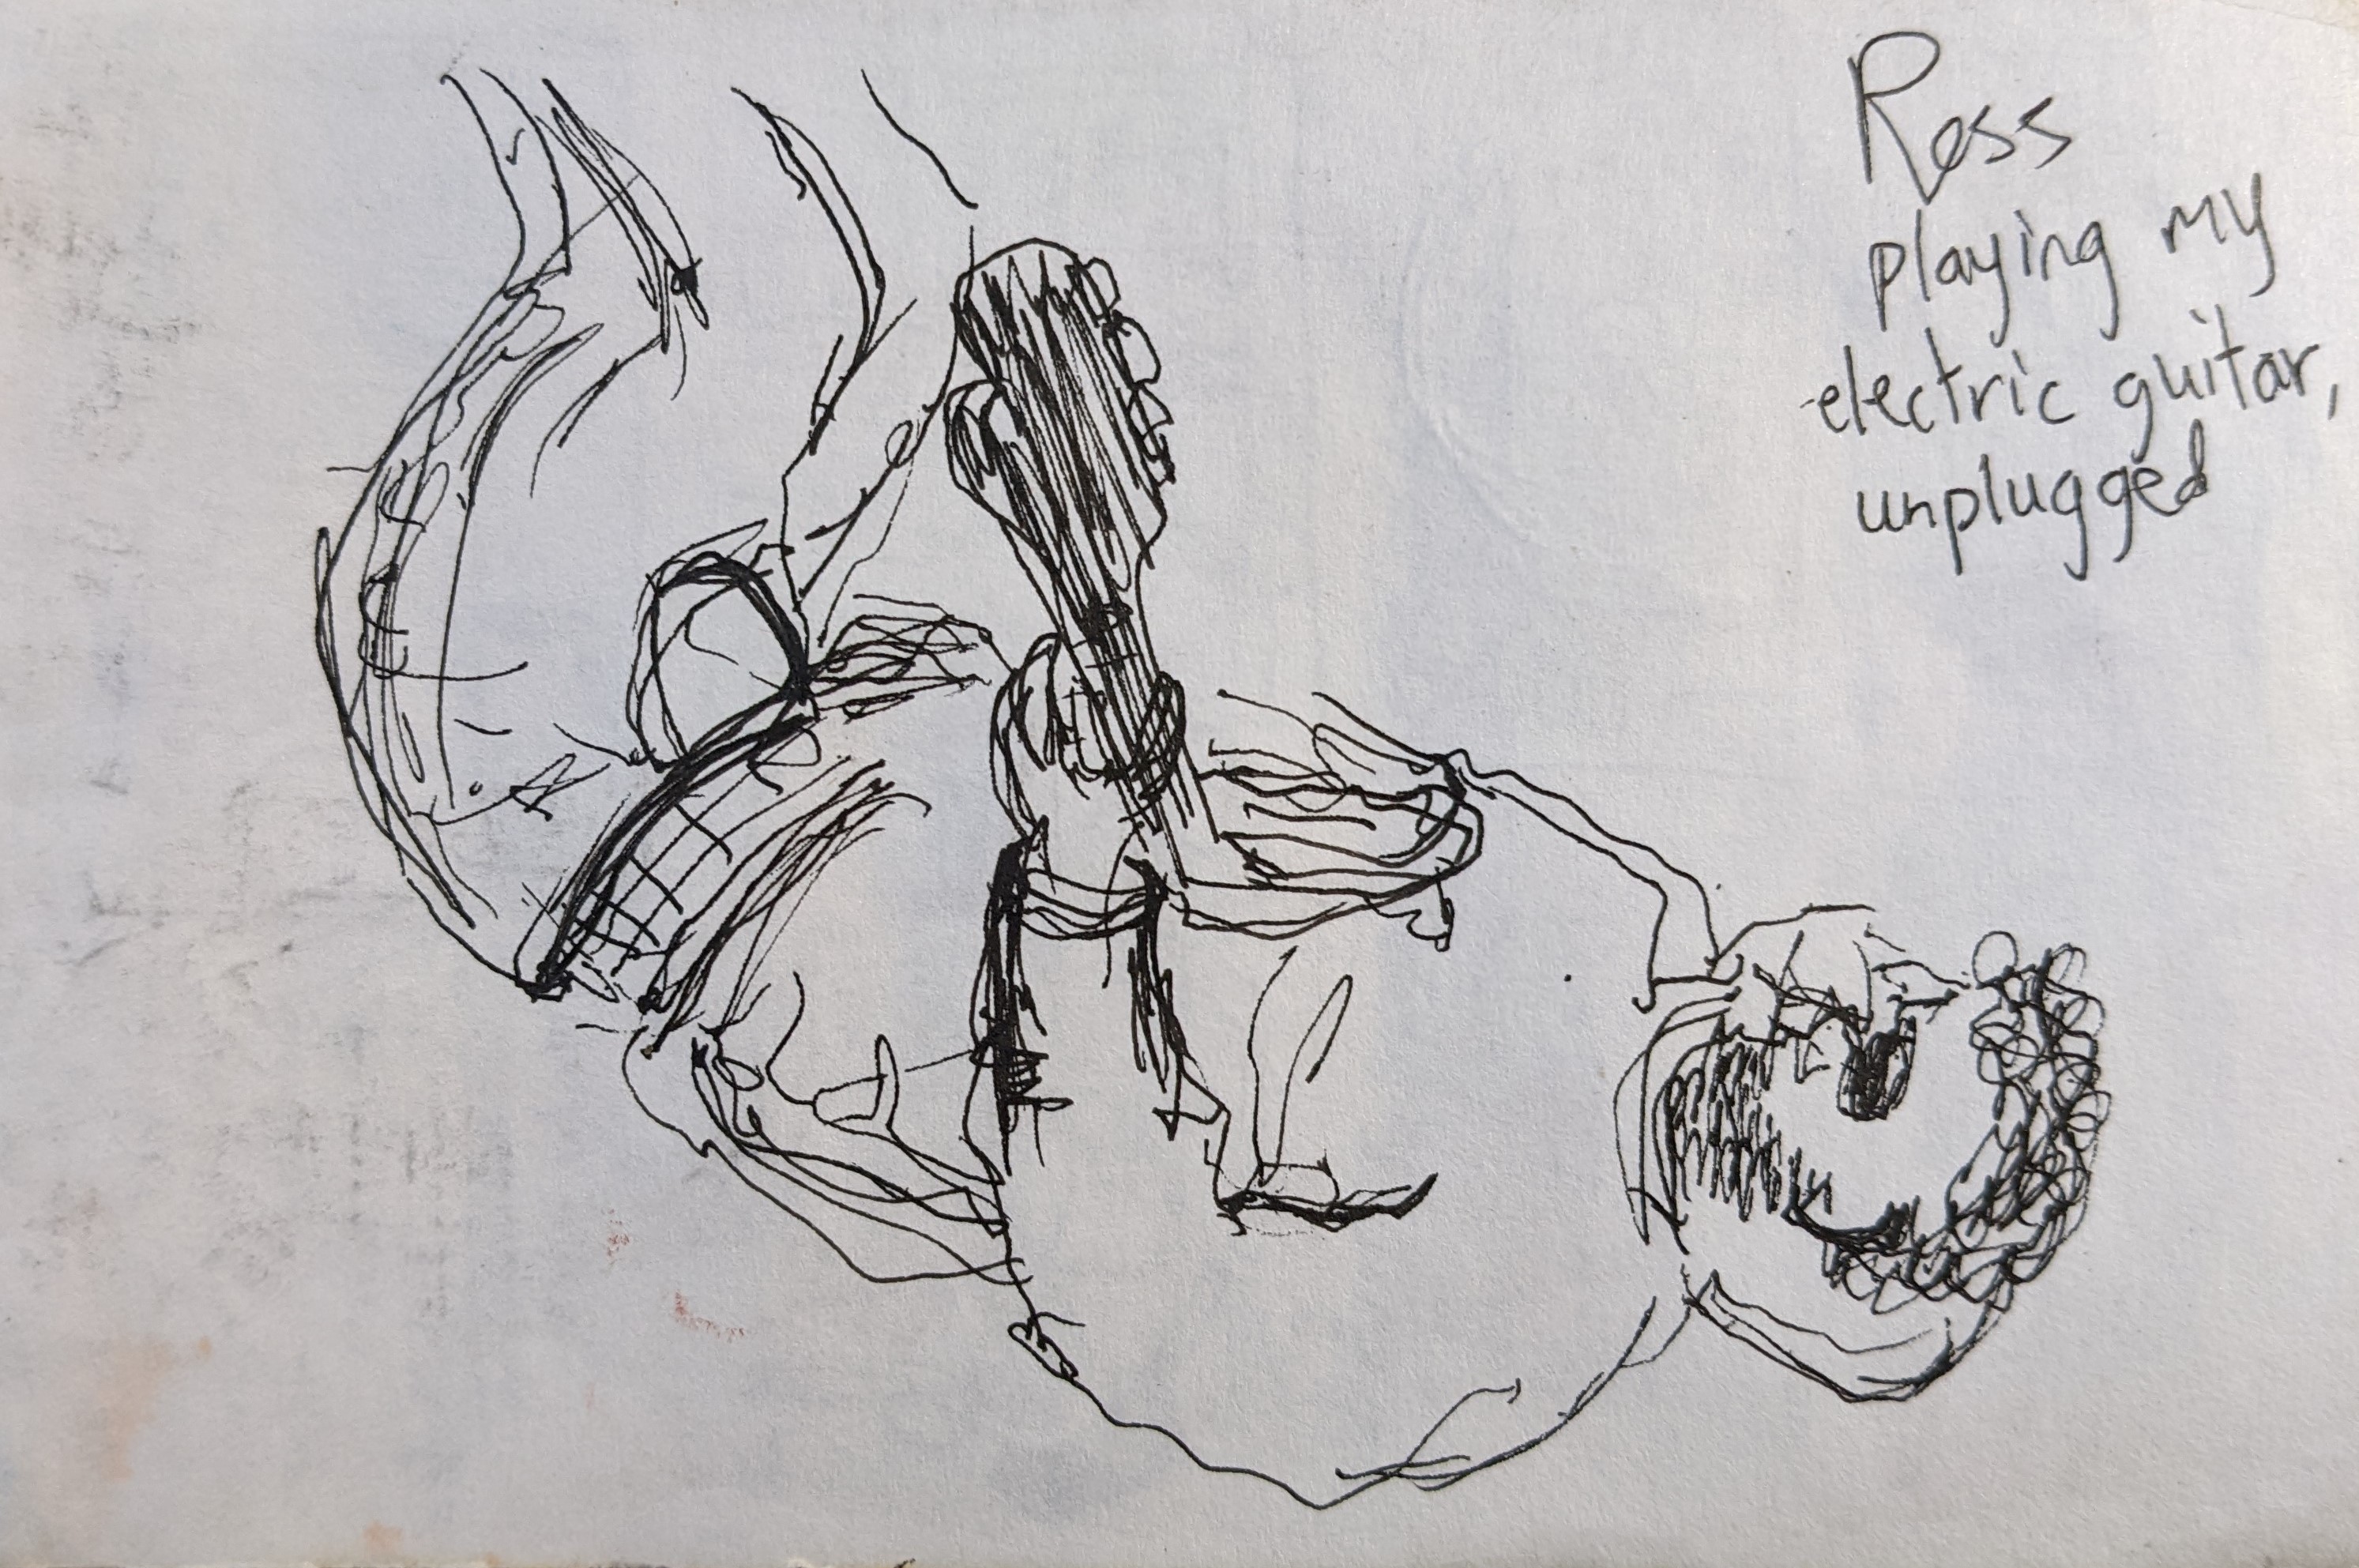 Ross
playing my
electric guitar,
unplugged